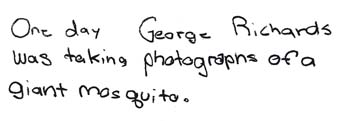 One day George Richards
was taking photographs of a
giant mosquito.